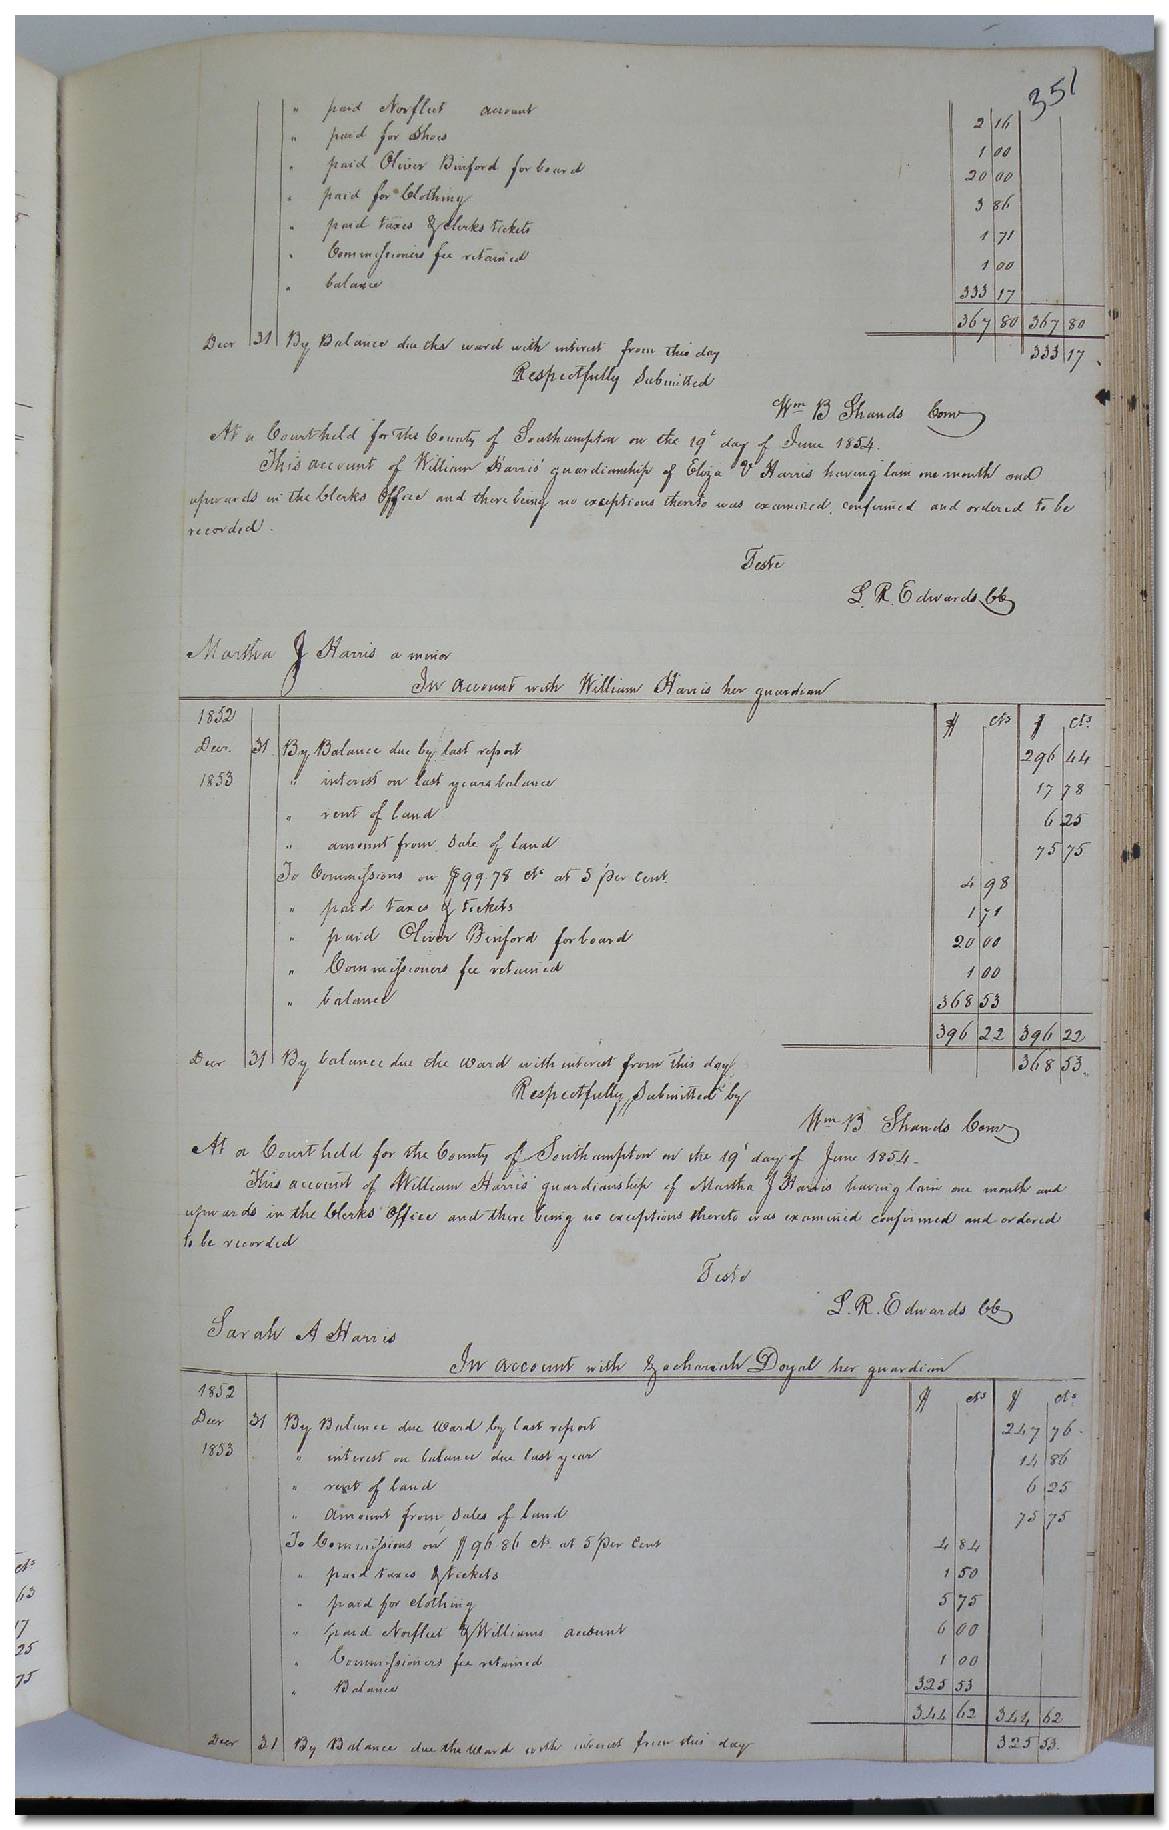 351
" paid Norfleet account 2 16
" paid for Shoes 1 00
" paid Oliver Binford for board 20 00
" paid for Clothing 3 86
" paid taxes & Clerks tickets 1 71
" Commissioners fee retained 1 00
" balance 333 17
367 80 367 80
Decr 31 By Balance due the ward with interest from this day 333 17
Respectfully Submitted
Wm B Shands Comr
At a Court held for the County of Southampton on the 19th day of June 1854.
This account of William Harris' guardianship of Eliza V Harris having lain one month and
upwards in the Clerks Office and there being no exceptions thereto was examined, confirmed and ordered to be
recorded.
Teste
L. R. Edwards CC
Martha J Harris a minor
In account with William Harris her guardian
1852 $ cts $ cts
Decr. 31 By Balance due by last report 296 44
1853 " interest on last years balance 17 78
" rent of land 6 25
" amount from sale of land 75 75
To Commissions on $99.78 cts at 5 per cent. 4 98
" paid taxes & tickets 1 71
" paid Oliver Binford for board 20 00
" Commissioners fee retained 1 00
" balance 368 53
396 22 396 22
Decr 31 By balance due the ward with interest from this day 368 53
Respectfully Submitted by
Wm B Shands Comr
At a Court held for the County of Southampton on the 19th day of June 1854.
This account of William Harris' guardianship of Martha J Harris having lain one month and
upwards in the Clerks Office and there being no exceptions thereto was examined confirmed and ordered
to be recorded
Teste
L. R. Edwards CC
Sarah A Harris
In account with Zachariah Doyal her guardian
1852 $ cts $ cts
Decr 31 By Balance due Ward by last report 247 76
1853 " interest on balance due last year 14 86
" rent of land 6 25
" amount from Sales of land 75 75
To Commissions on $96 86 cts at 5 per cent 4 84
" paid taxes & tickets 1 50
" paid for clothing 5 75
" paid Norfleet & Williams account 6 00
" Commissioners fee retained 1 00
" Balance 325 53
344 62 344 62
Decr 31 By Balance due the Ward with interest from this day 325 53
cts
63
17
25
75